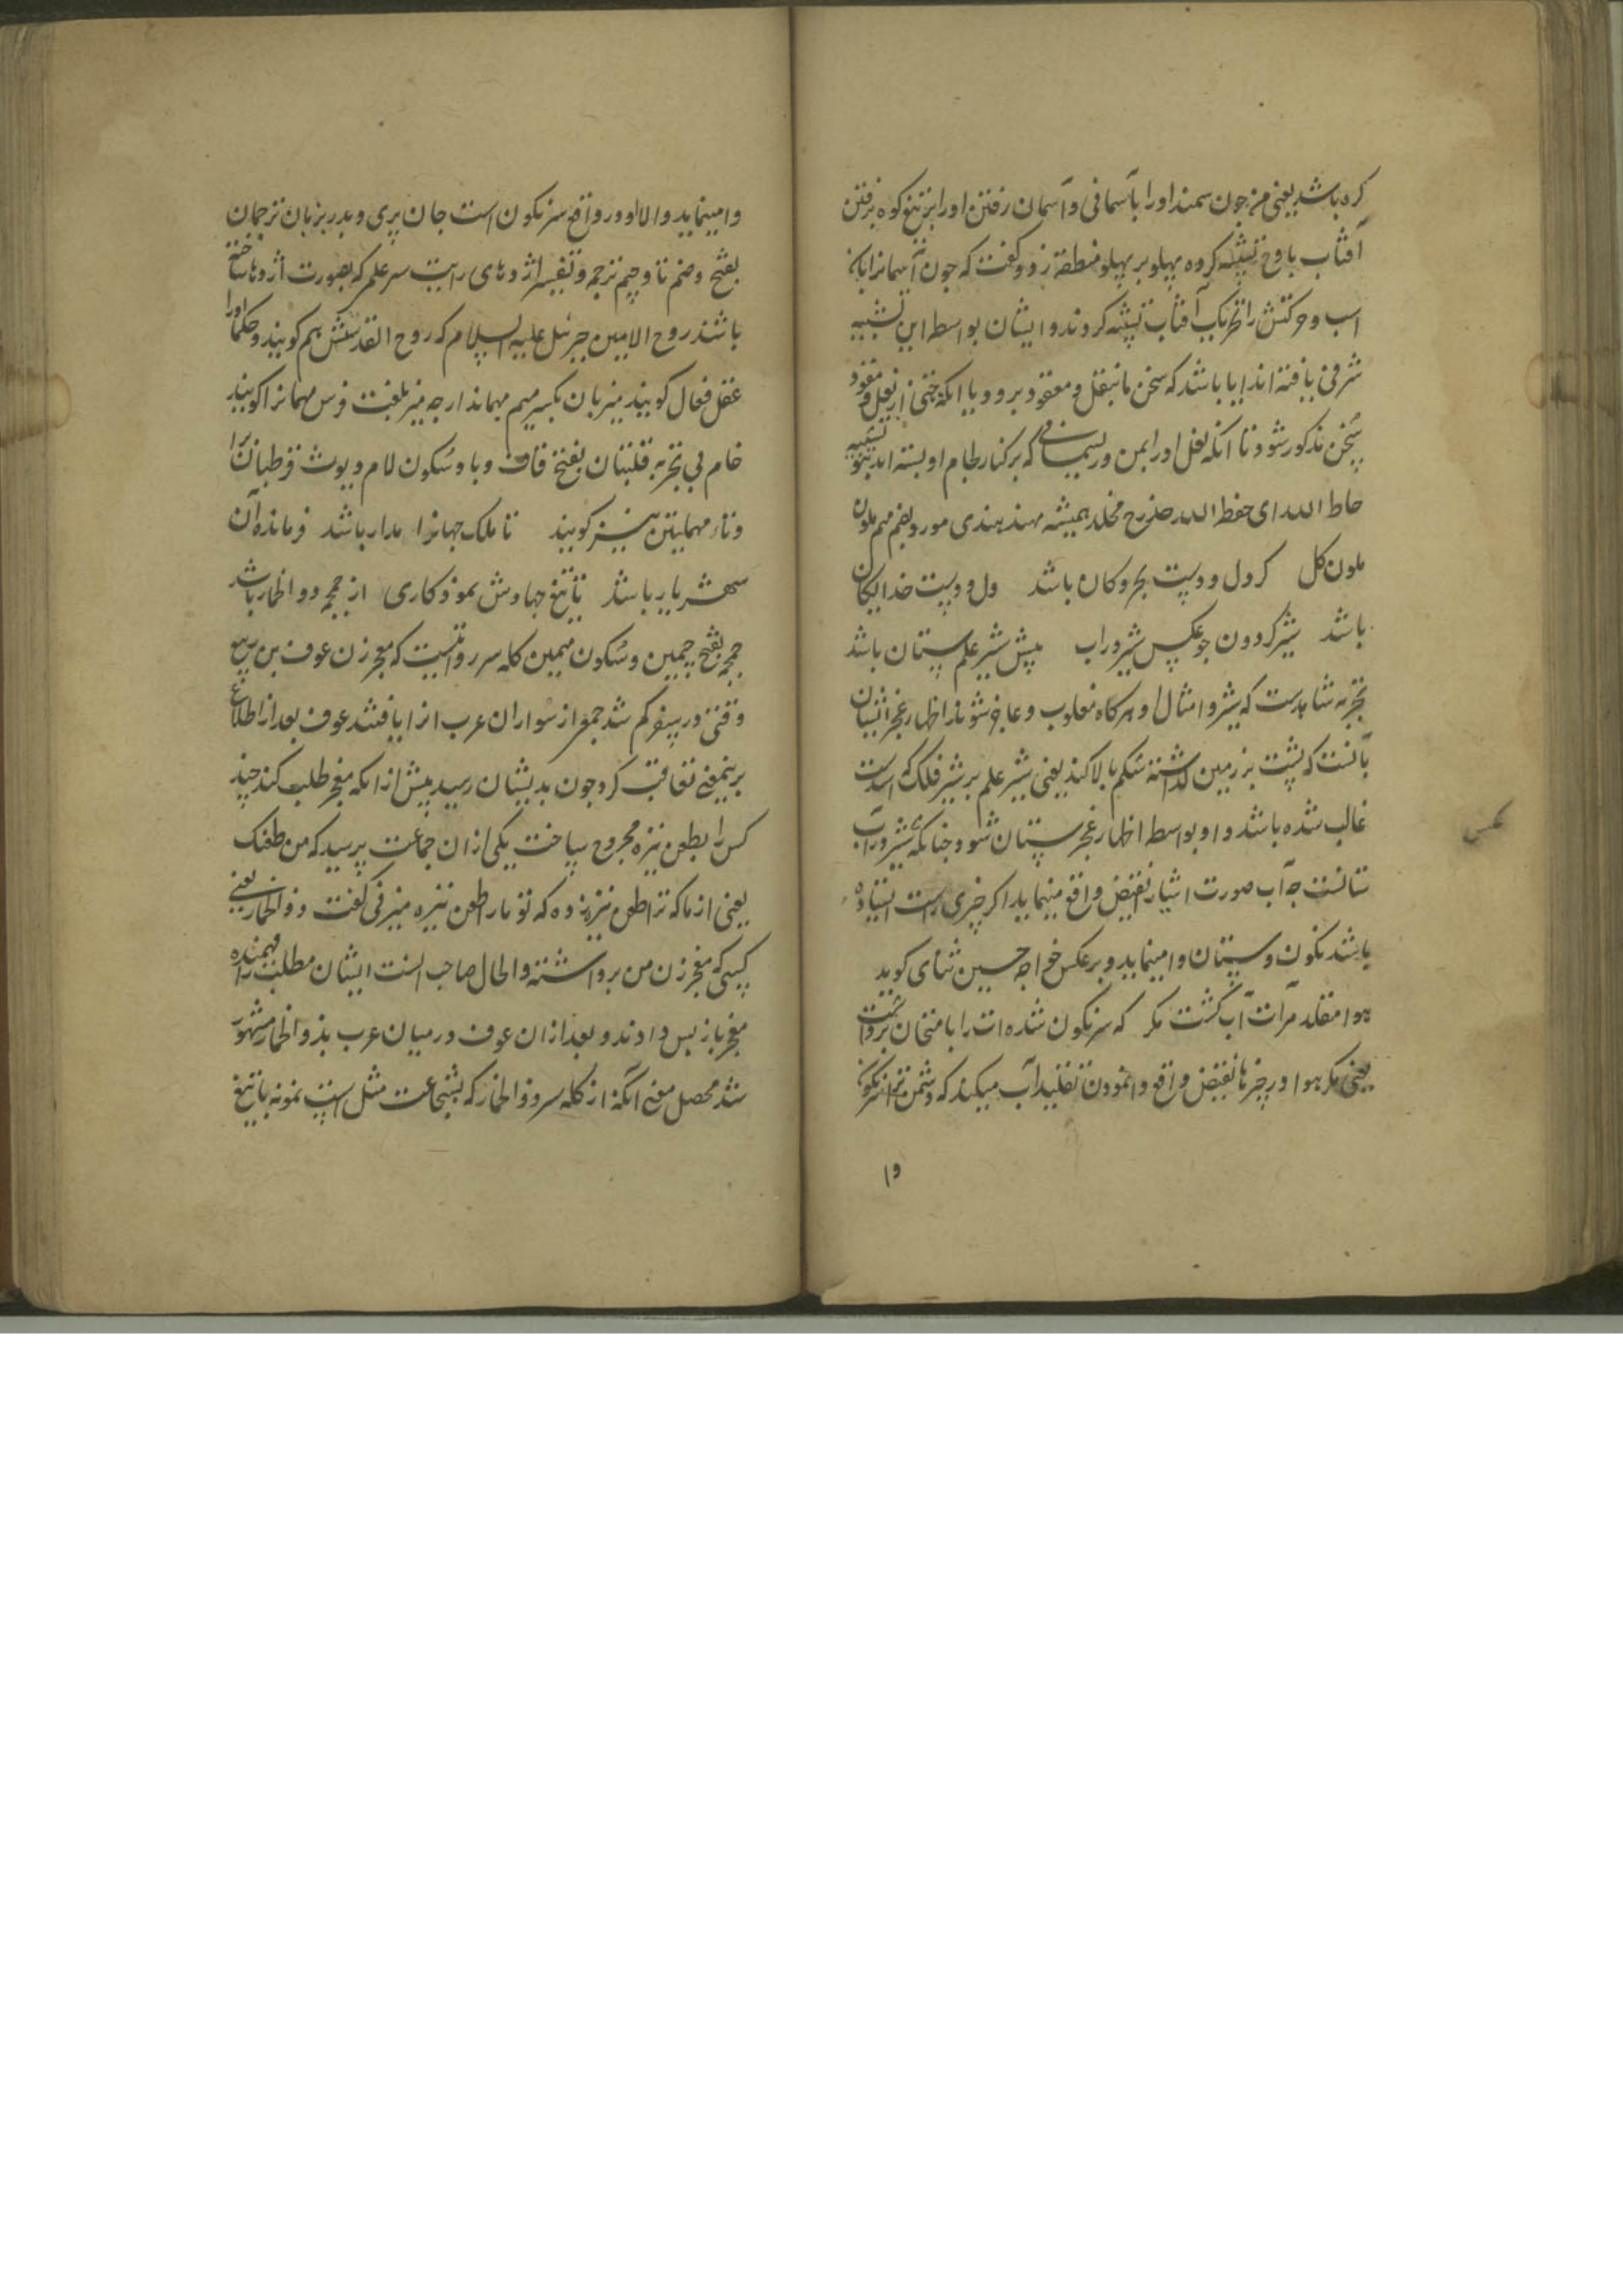 کره باشد یعنی من چون سمند او را باسمانی و آسمان رفتن او را بر تیغ کوه برفتن
آفتاب باوج تشبیه کرده پهلو بر پهلو منطقه زد و گفت که چون آسمانرا بان
اسب و حرکتش را بحرکت آفتاب تشبیه کردند و ایشان بواسطه این تشبیه
شرفی یافته اند ایا باشد که سخن ما بنعل و مقود برود یا انکه حتی از نعل و مقود
سخن مذکور شود تا انکه نعل او را بمن و ریسمانی که بر کنار لجام او بسته اند تشبیه
حاط الله ای حفظ الله حذرح مخلد همیشه مهند هندی مورد بضم میم ملون
ملون کل کر دل و دست بحر و کان باشد دل و دست خدایکان
باشد شیر کردون جو عکس شیر در اب پیش شیر علم ستان باشد
تجربه شاهدست که شیر و امثال او هرکاه مغلوب و عاجز شوند اظهار عجز ایشان
بانست که پشت بر زمین کذاشته شکم بالا کنند یعنی شیر علم بر شیر فلک که اسدست
غالب شده باشد و او بواسطه اظهار عجز ستان شود چنانکه شیر در آب
ستانست چه آب صورت اشیا بنقیض واقع مینماید اگر چیزی راست ایستاده
باشد نکون و ستان وامینماید و بر عکس خواجه حسین ثنای کوید
هوا مقلد مرآت آب کشت مکر که سرنکون شده ات را بامتحان برداشت
یعنی مکر هوا در چیزها بنقیض واقع وانمودن تقلید آب میکند که دشمن ترا سرنکون
وا
وامینماید والا او در واقع سرنکون است جان پری و بدر بزبان ترجمان
بفتح و ضم تا و جیم ترجمه و تفسیر اژدهای رایت سر علم که بصورت اژدها ساخته
باشند روح الامین جبرئیل علیه السلام که روح القدسش هم کویند و حکما او را
عقل فعال کویند میزبان بکسر میم مهماندار چه میز بلغت فرس مهمانرا کویند
خام بی تجربه قلتبان بفتح قاف و با و سکون لام دیوث قرطبان را
و تاء مهملتین نیز کویند تا ملک جهانرا مدار باشد فرمانده آن
شهریار باشد تا تیغ جهادش نمودکاری از جمجمه ذو الخمار باشد
جمجمه بفتح جیمین و سکون میمین کله سر روایتست که معجر زن عوف بن ربیع
وقتی در سفر کم شد جمعی از سواران عرب انرا یافتند عوف بعد از اطلاع
برینمعنی تعاقب کرد چون بدیشان رسید پیش از انکه معجر طلب کند چند
کس را بطعن نیزه مجروح ساخت یکی از ان جماعت پرسید که من طعنک
یعنی از ما که ترا طعن نیزه زده که تو ما را طعن نیزه میزنی گفت ذو الخمار یعنی
کسی که معجر زن من برداشته والحال صاحب انست ایشان مطلب را فهمیده
معجر باز پس دادند و بعد از ان عوف در میان عرب بذو الخمار مشهور
شد محصل معنی انکه از کله سر ذو الخمار که بشجاعت مثل است نمونه با تیغ